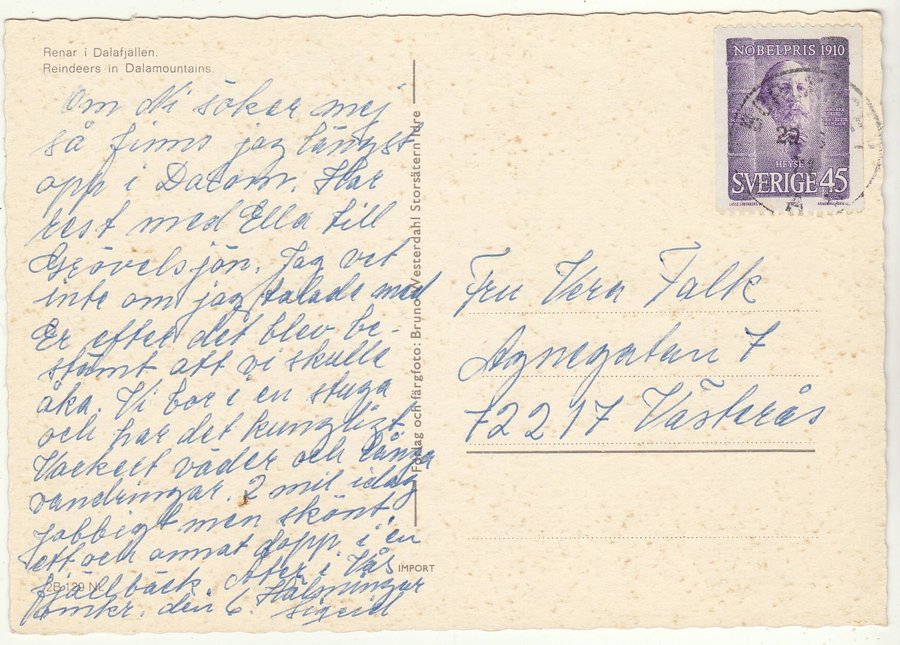 Renar i Dalafjällen.
Reindeers in Dalamountains.
Om Ni söker mej
så finns jag längst
opp i Dalom. Har
rest med Ella till
Grövelsjön. Jag vet
inte om jag talade med
Er efter det blev be-
stämt att vi skulle
åka. Vi bor i en stuga
och har det kungligt.
Vackert väder och långa
vandringar. 2 mil idag
jobbigt men skönt,
ett och annat dopp i en
fjällbäck. Åter i Vås
omkr. den 6. Hälsningar
Sigrid
2B 129 NL
Förlag och färgfoto: Bruno Westerdahl Storsätern Idre
IMPORT
NOBELPRIS 1910
HEYSE
SVERIGE 45
Fru Vera Falk
Agnegatan 7
72217 Västerås